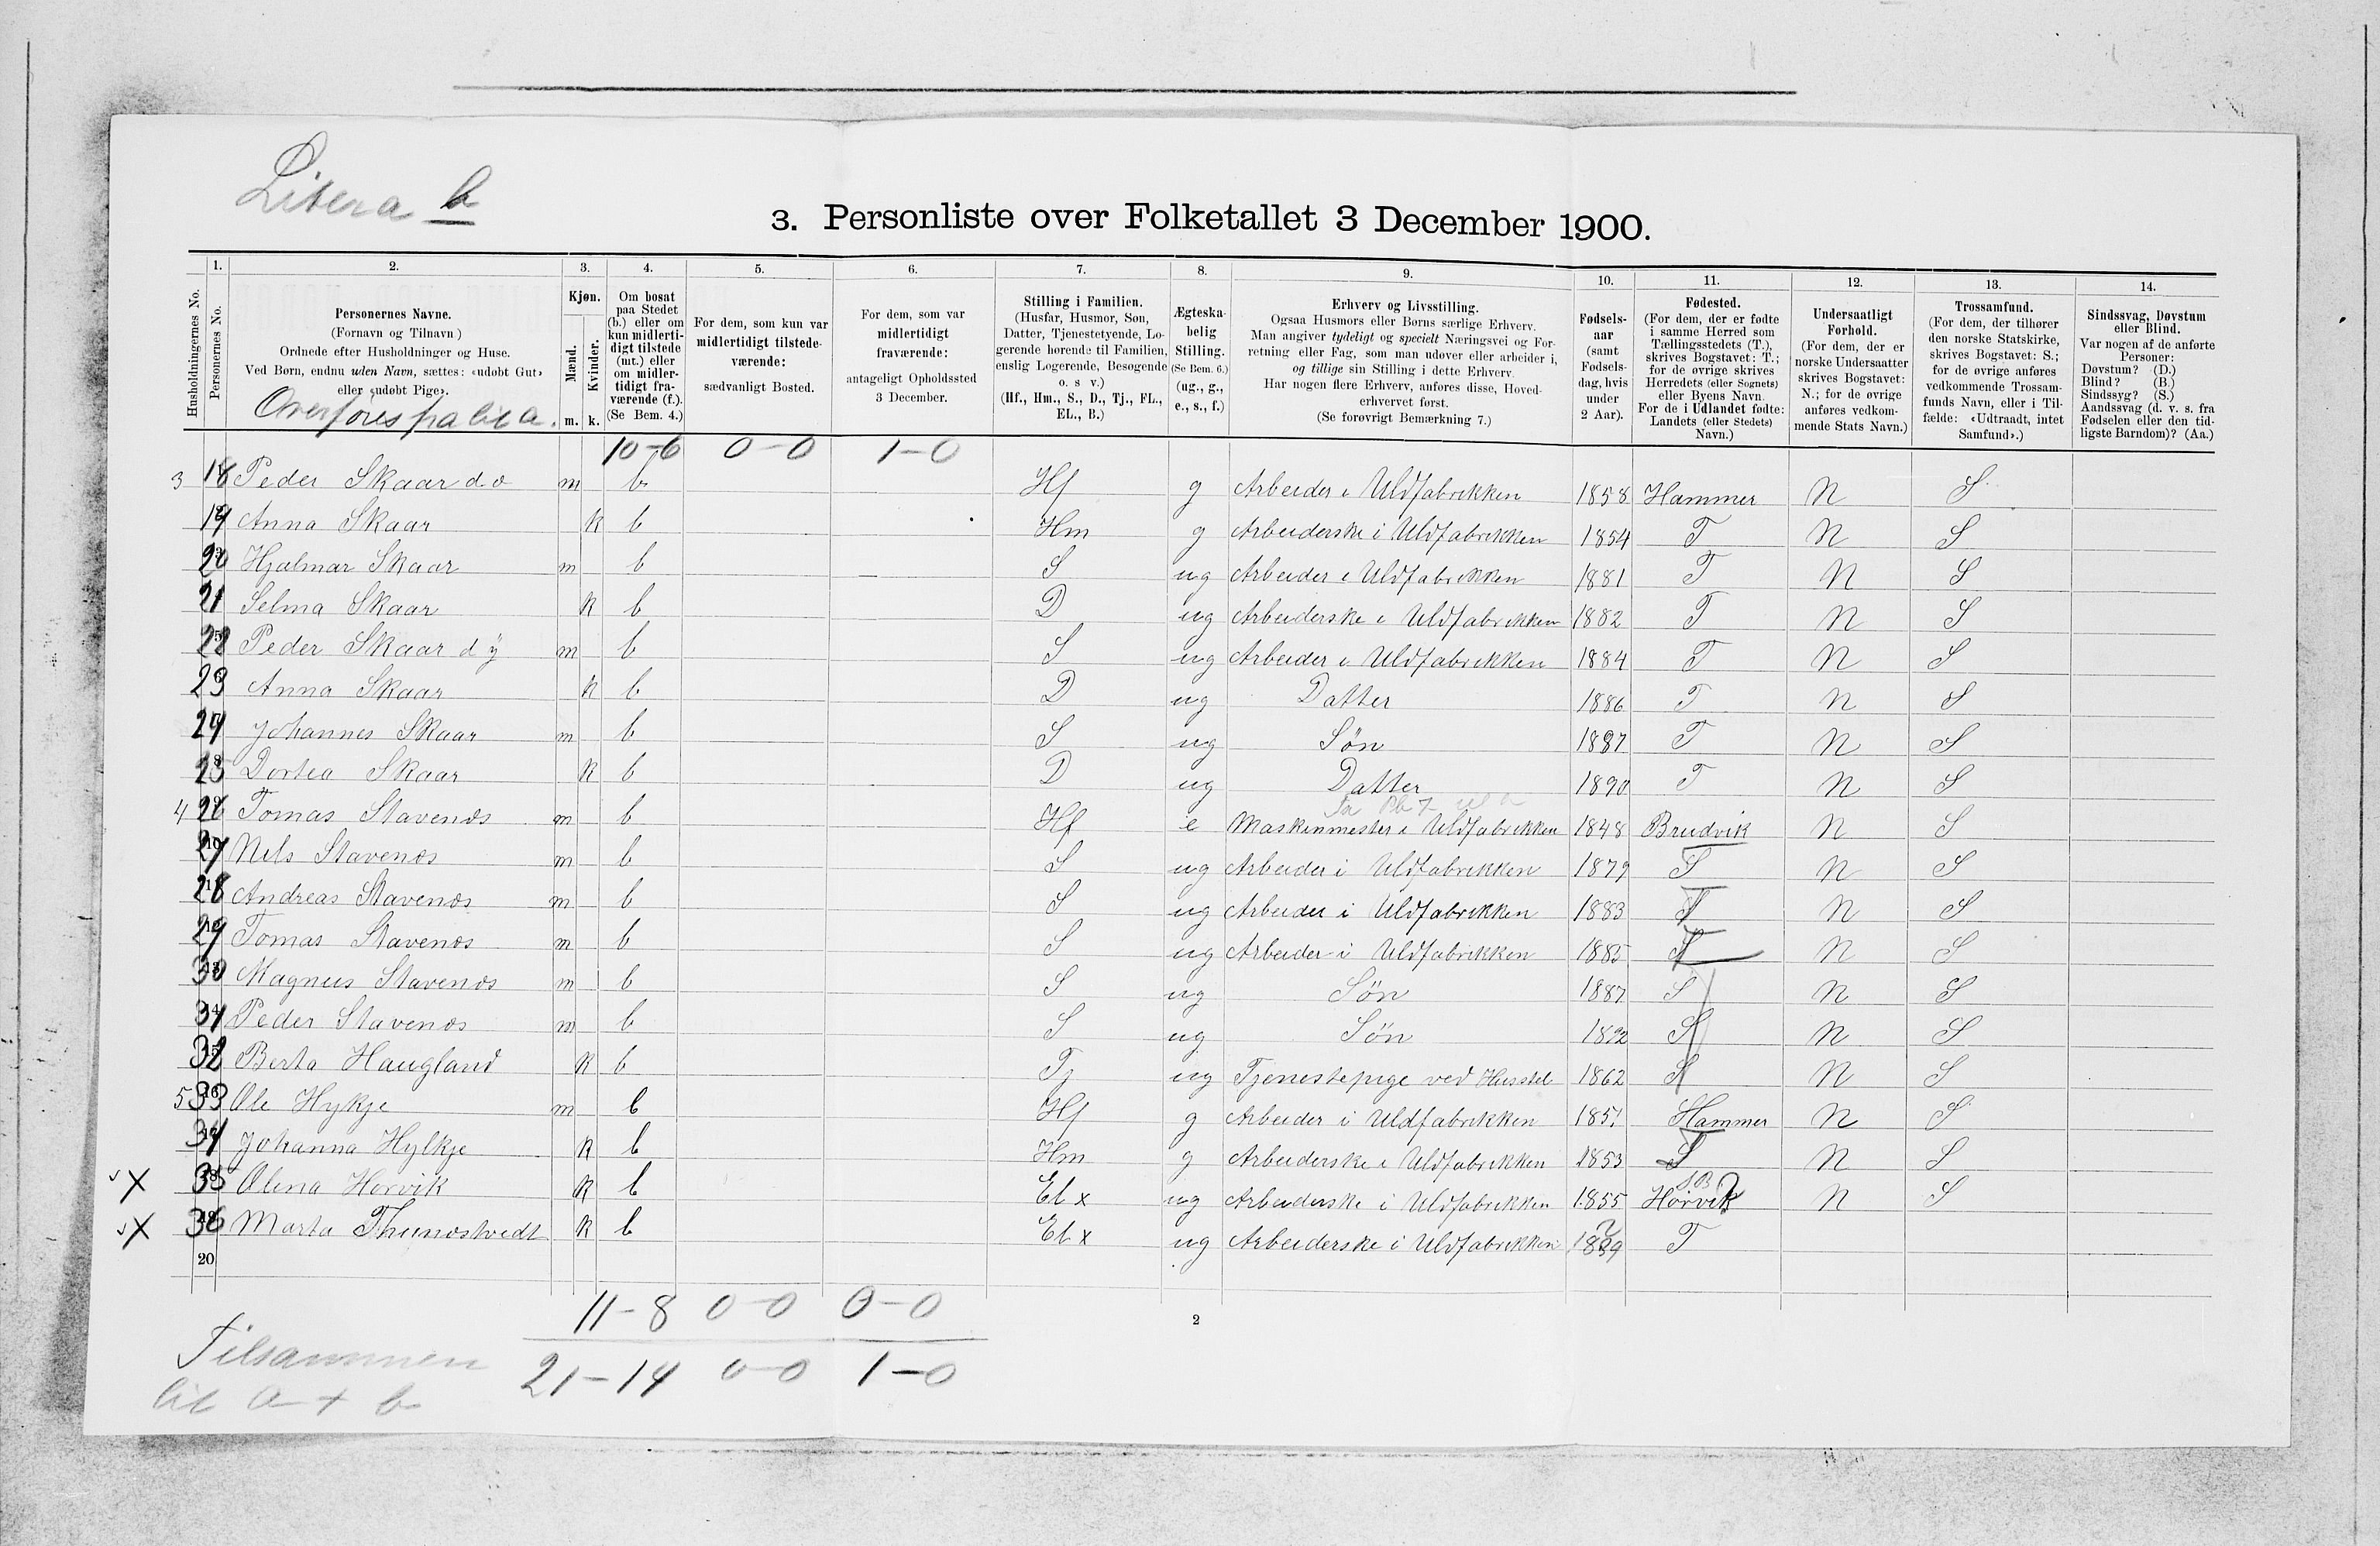 Litera b
3. Personliste over Folketallet 3 December 1900.
Husholdningernes No.
1. Personernes No.
2. Personernes Navne.
(Fornavn og Tilnavn)
Ordnede efter Husholdninger og Huse.
Ved Børn, endnu uden Navn, sættes: «udøbt Gut»
eller «udøbt Pige».
Overføres fra lit a.
3. Kjøn.
Mænd. m.
Kvinder. k.
4. Om bosat
paa Stedet
(b.) eller om
kun midlerti-
digt tilstede
(mt.) eller
om midler-
tidigt fra-
værende (f.).
(Se Bem. 4.)
5. For dem, som kun var
midlertidigt tilstede-
værende:
sædvanligt Bosted.
6. For dem, som var
midlertidigt
fraværende:
antageligt Opholdssted
3 December.
7. Stilling i Familien.
(Husfar, Husmor, Søn,
Datter, Tjenestetyende, Lo-
gerende hørende til Familien,
enslig Logerende, Besøgende
o. s v.)
(Hf., Hm., S., D., Tj., FL.,
EL., B.)
8. Ægteska-
belig
Stilling.
(Se Bem. 6.)
(ug., g.,
e., s., f.)
9. Erhverv og Livsstilling.
Ogsaa Husmors eller Børns særlige Erhverv.
Man angiver tydeligt og specielt Næringsvei og For-
retning eller Fag, som man udøver eller arbeider i,
og tillige sin Stilling i dette Erhverv.
Har nogen flere Erhverv, anføres disse, Hoved-
erhvervet først.
(Se forøvrigt Bemærkning 7.)
10. Fødsels-
aar
(samt
Fødsels-
dag, hvis
under
2 Aar).
11. Fødested.
(For dem, der er fødte
i samme Herred som
Tællingsstedets (T.),
skrives Bogstavet: T.;
for de øvrige skrives
Herredets (eller Sognets)
eller Byens Navn.
For de i Udlandet fødte:
Landets (eller Stedets)
Navn.)
12. Undersaatligt
Forhold.
(For dem, der er
norske Undersaatter
skrives Bogstavet:
N.; for de øvrige
anføres vedkom-
mende Stats Navn.)
13. Trossamfund.
(For dem, der tilhører
den norske Statskirke,
skrives Bogstavet: S.;
for de øvrige anføres
vedkommende Trossam-
funds Navn, eller i Til-
fælde: «Udtraadt, intet
Samfund».)
14. Sindssvag, Døvstum
eller Blind.
Var nogen af de anførte
Personer:
Døvstum? (D.)
Blind? (B.)
Sindssyg? (S.)
Aandssvag (d. v. s. fra
Fødselen eller den tid-
ligste Barndom)? (Aa.)
10-6 0-0 1-0
3 18 Peder Skaar d.o m b Hf g Arbeider i Uldfabrikken 1858 Hammer N S
19 Anna Skaar k b Hm g Arbeiderske i Uldfabrikken 1854 T N S
20 Hjalmar Skaar m b S ug Arbeider i Uldfabrikken 1881 T N S
21 Selma Skaar k b D ug Arbeiderske i Uldfabrikken 1882 T N S
22 Peder Skaar d y m b S ug Arbeider i Uldfabrikken 1884 T N S
23 Anna Skaar k b D ug Datter 1886 T N S
24 Johannes Skaar m b S ug Søn 1887 T N S
25 Dortea Skaar k b D ug Datter 1890 T N S
4 26 Tomas Stavenæs m b Hf e Maskinmester i Uldfabrikken 1848 Brudvik N S
27 Nils Stavenæs m b S ug Arbeider i Uldfabrikken 1879 T N S
28 Andreas Stavenæs m b S ug Arbeider i Uldfabrikken 1883 T N S
29 Tomas Stavenæs m b S ug Arbeider i Uldfabrikken 1885 T N S
30 Magnus Stavenæs m b S ug Søn 1887 S N S
31 Peder Stavenæs m b S ug Søn 1892 S N S
32 Berta Haugland k b Tj ug Tjenestepige ved Husstel 1862 S N S
5 33 Ole Hykje m b Hf g Arbeider i Uldfabrikken 1851 Hammer N S
34 Johanna Hylkje k b Hm g Arbeiderske i Uldfabrikken 1853 T N S
X 35 Olina Hervik k b El x ug Arbeiderske i Uldfabrikken 1855 Hørvik ? N S
X 36 Marta Thunæstvedt k b El x ug Arbeiderske i Uldfabrikken T
20
11-8 0-0 0-0
2
Tilsammen
lit a + b 21-14 0-0 1-0